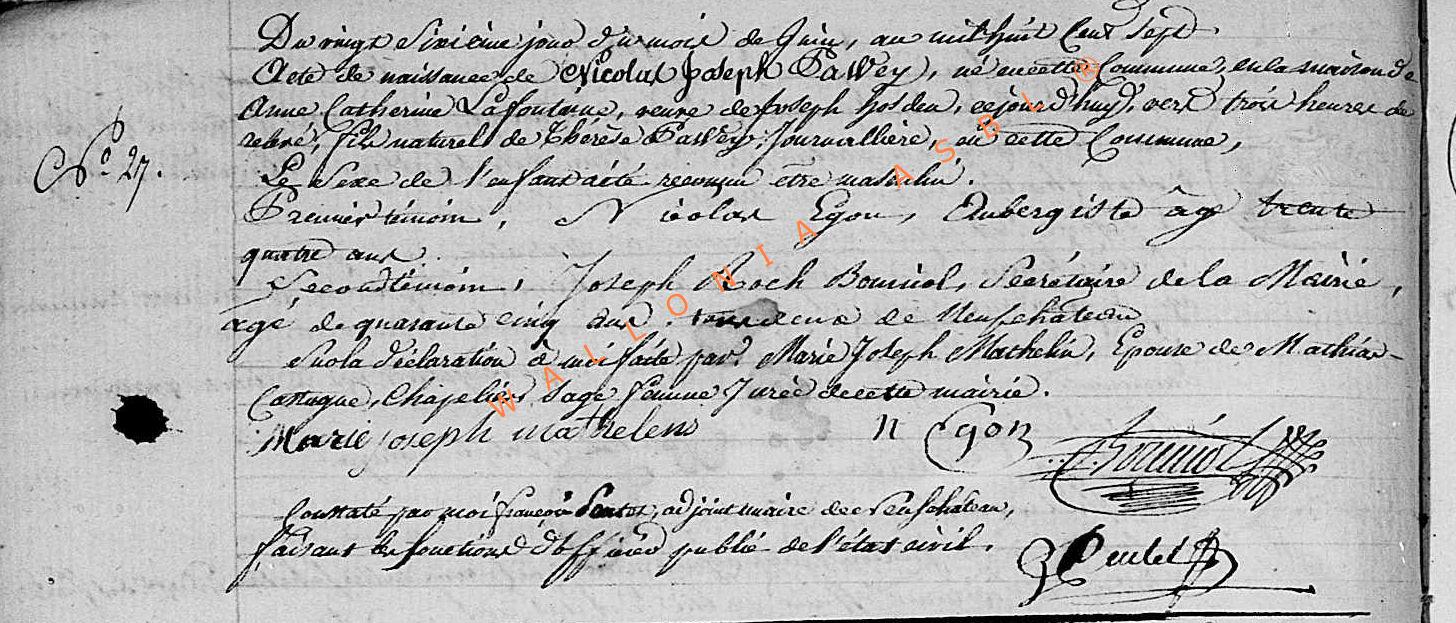 Du vingt Sixième jour du mois de Juin, an mil huit Cent Sept
Acte de naissance de Nicolas Joseph Pawey, né en cette Commune, en la maison de
Anne Catherine Lafontaine, veuve de Joseph hosdeu, cejourd'huy, vers trois heures de
relevé, fils naturel de Thérèse Pawey, Journallière, en cette Commune,
Le Sexe de l'enfant a été reconnu être masculin.
N.° 27.
Premier témoin, Nicolas Egon, Aubergiste âgé trente
quatre ans.
Second témoin, Joseph Roch Bouniol, Secrétaire de la Mairie,
âgé de quarante cinq ans. tous deux de Neufchâteau
Sur la déclaration à moi faite par Marie Joseph Mathelin, Epouse de Mathias
Castagne, Chapelier, Sage femme Jurée de cette mairie.
Marie joseph mathelens n Egon Bouniol
Constaté par moi françois, adjoint maire de Neufchâteau,
faisant les fonctions d'officier public de l'état civil.
WALLONIA ASBL ®